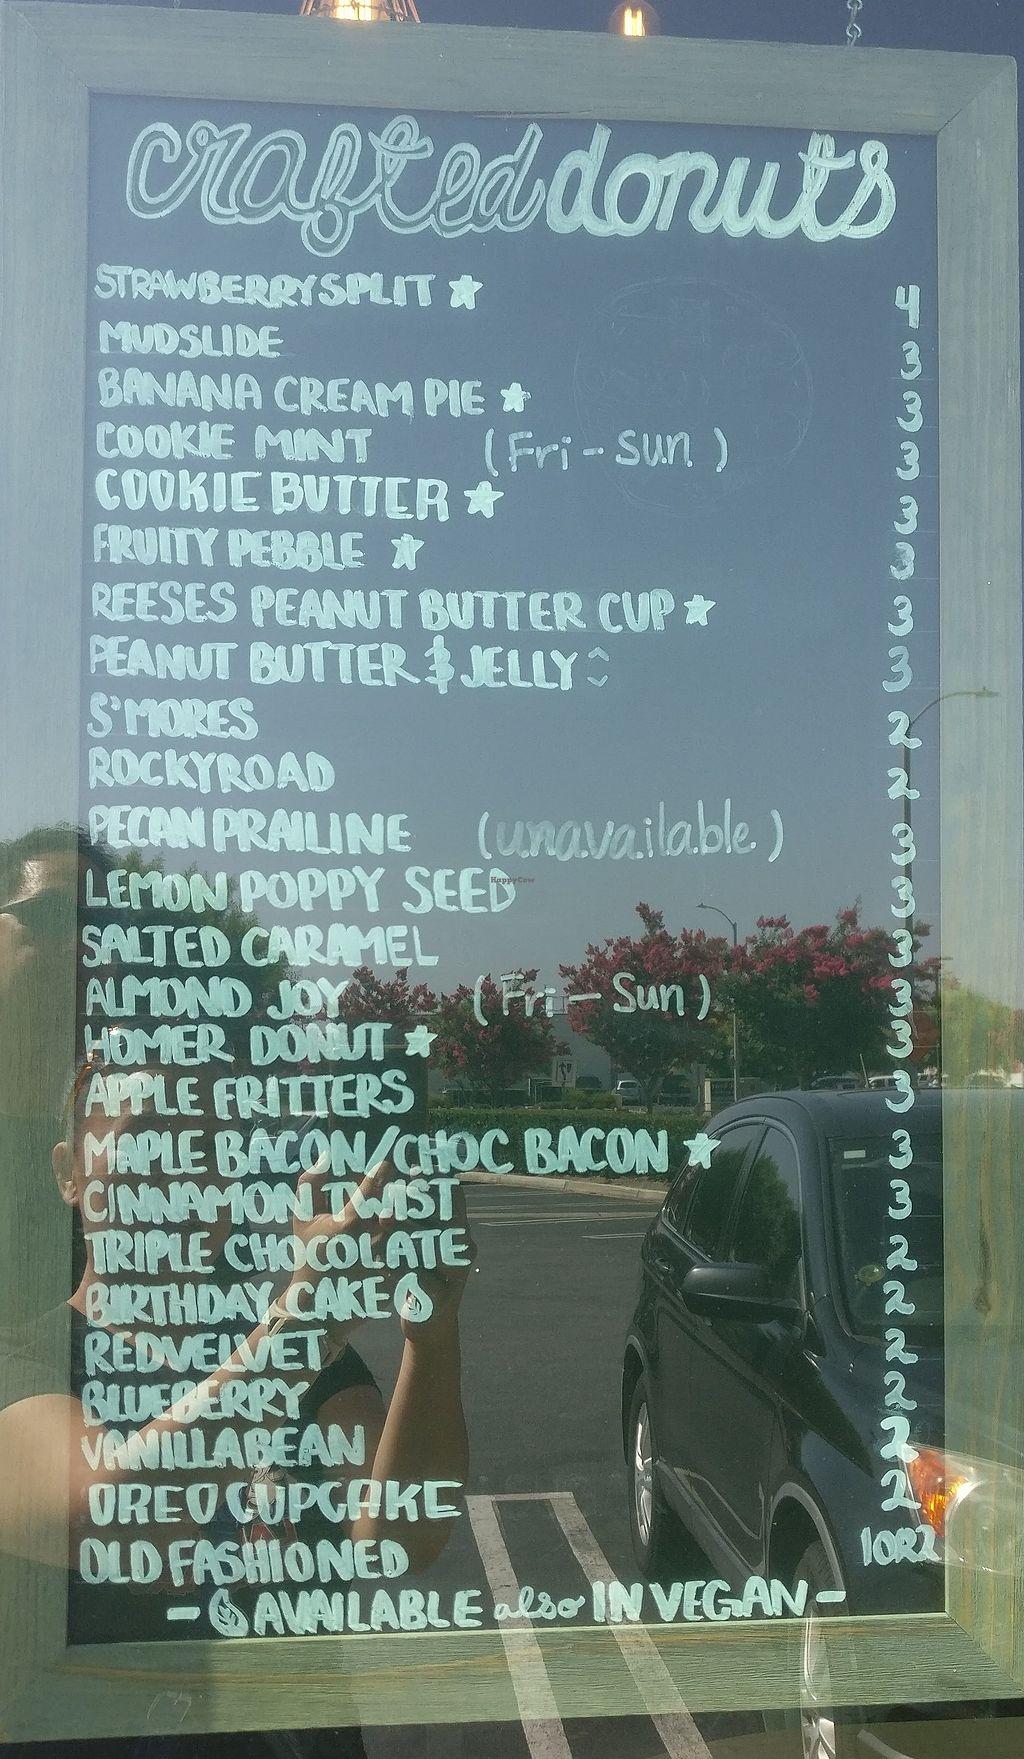 crafted donuts
STRAWBERRY SPLIT ★ 4
MUDSLIDE 3
BANANA CREAM PIE ★ 3
COOKIE MINT (Fri - Sun) 3
COOKIE BUTTER ★ 3
FRUITY PEBBLE ★ 3
REESES PEANUT BUTTER CUP ★ 3
PEANUT BUTTER & JELLY 3
S'MORES 2
ROCKYROAD 2
PECAN PRAILINE (unavailable.) 3
LEMON POPPY SEED 3
HappyCow
SALTED CARAMEL 3
ALMOND JOY (Fri - Sun) 3
HOMER DONUT ★ 3
APPLE FRITTERS 3
MAPLE BACON/CHOC BACON ★ 3
CINNAMON TWIST 3
TRIPLE CHOCOLATE 2
BIRTHDAY CAKE 2
RED VELVET 2
BLUEBERRY 2
VANILLA BEAN 2
OREO CUPCAKE 2
OLD FASHIONED 1 OR 2
- AVAILABLE also IN VEGAN -